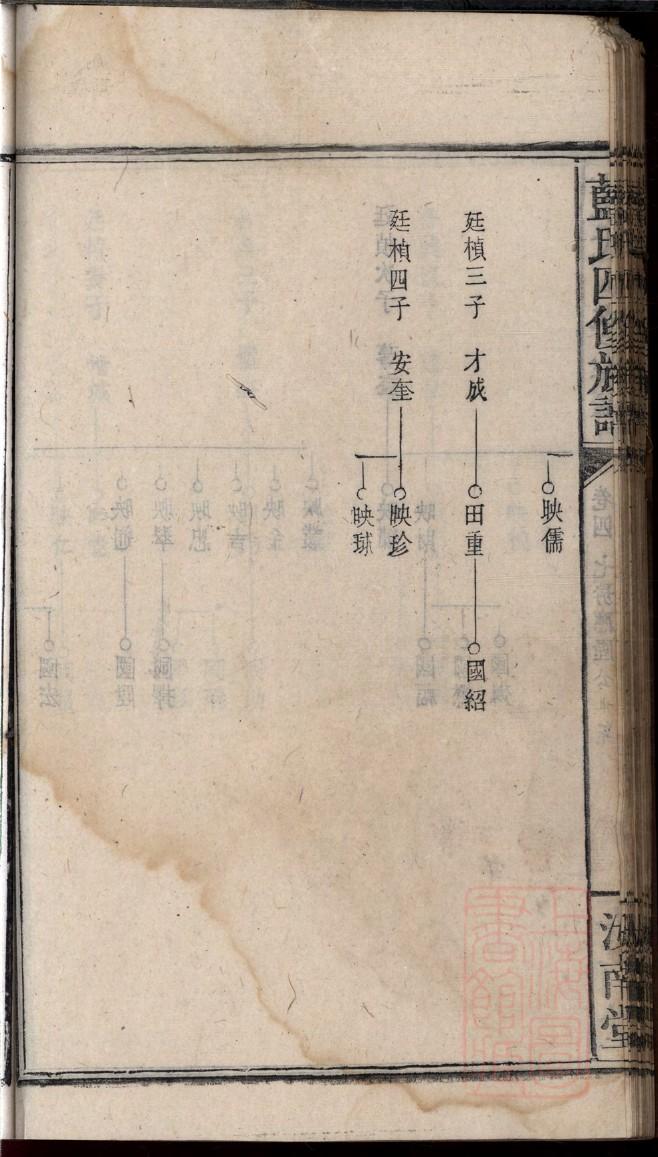 藍氏四修族譜
卷四
汝南堂
映儒
廷楨三子 才成 田重 國紹
廷楨四子 安奎 映珍
映球